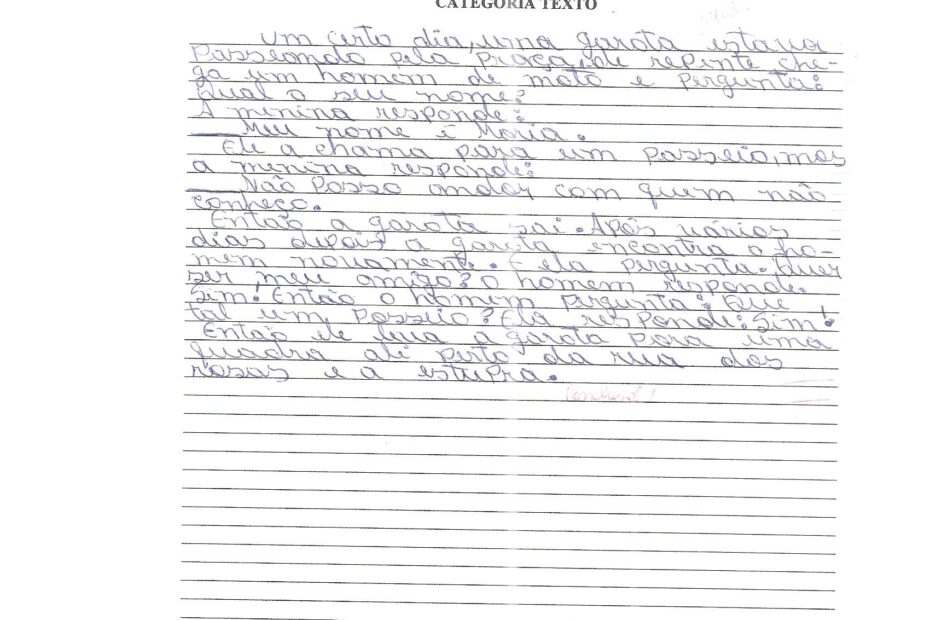 CATEGORIA TEXTO
Um certo dia, uma garota estava
passeando pela praça, de repente che-
ga um homem de moto e pergunta:
Qual o seu nome?
A menina responde:
— Meu nome é Maria.
Ele a chama para um passeio, mas
a menina responde:
— Não posso andar com quem não
conheço.
Então a garota sai. Após vários
dias depois a garota encontra o ho-
mem novament. E ela pergunta. Quer
ser meu amigo? o homem responde.
Sim! Então o homem pergunta: Que
tal um passeio? Ela responde: Sim!
Então ele leva a garota para uma
quadra ali perto da rua das
rosas e a estupra.